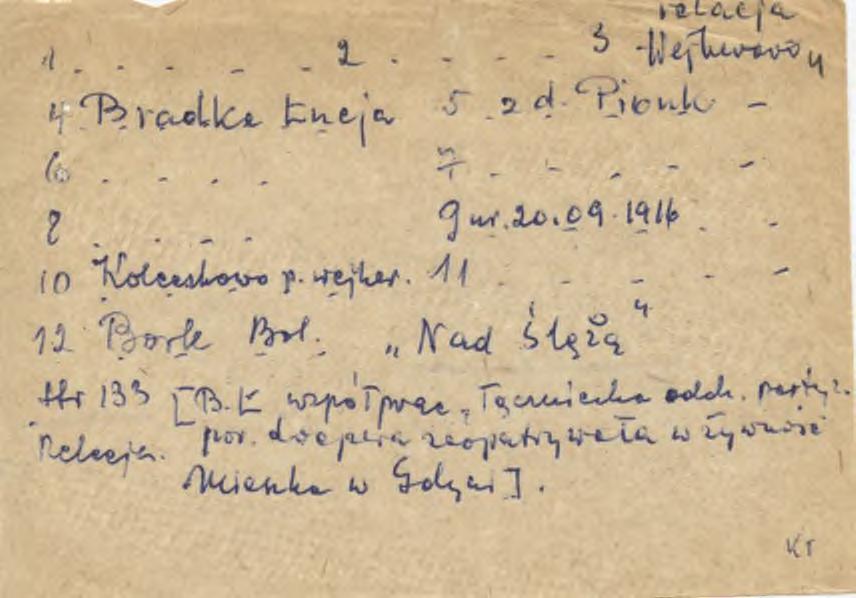 relacja
1 . - - - - 2 . - - - 3 - Wejherowo "
4 Bradke Łucja 5 z d. Pionk -
6 . . . . 7 - - - - -
8 . . . . 9 ur. 20.09.1916 . -
10 Kolceshowo p. wejher. 11 . - - - -
12 Bork Bol. „Nad Ślężą"
str 133 [B.Ł współprac. łączniczka oddz. partyz.
Relacja. por. zaopatrywała w żywność
Mieszka w Gdyni].
KT